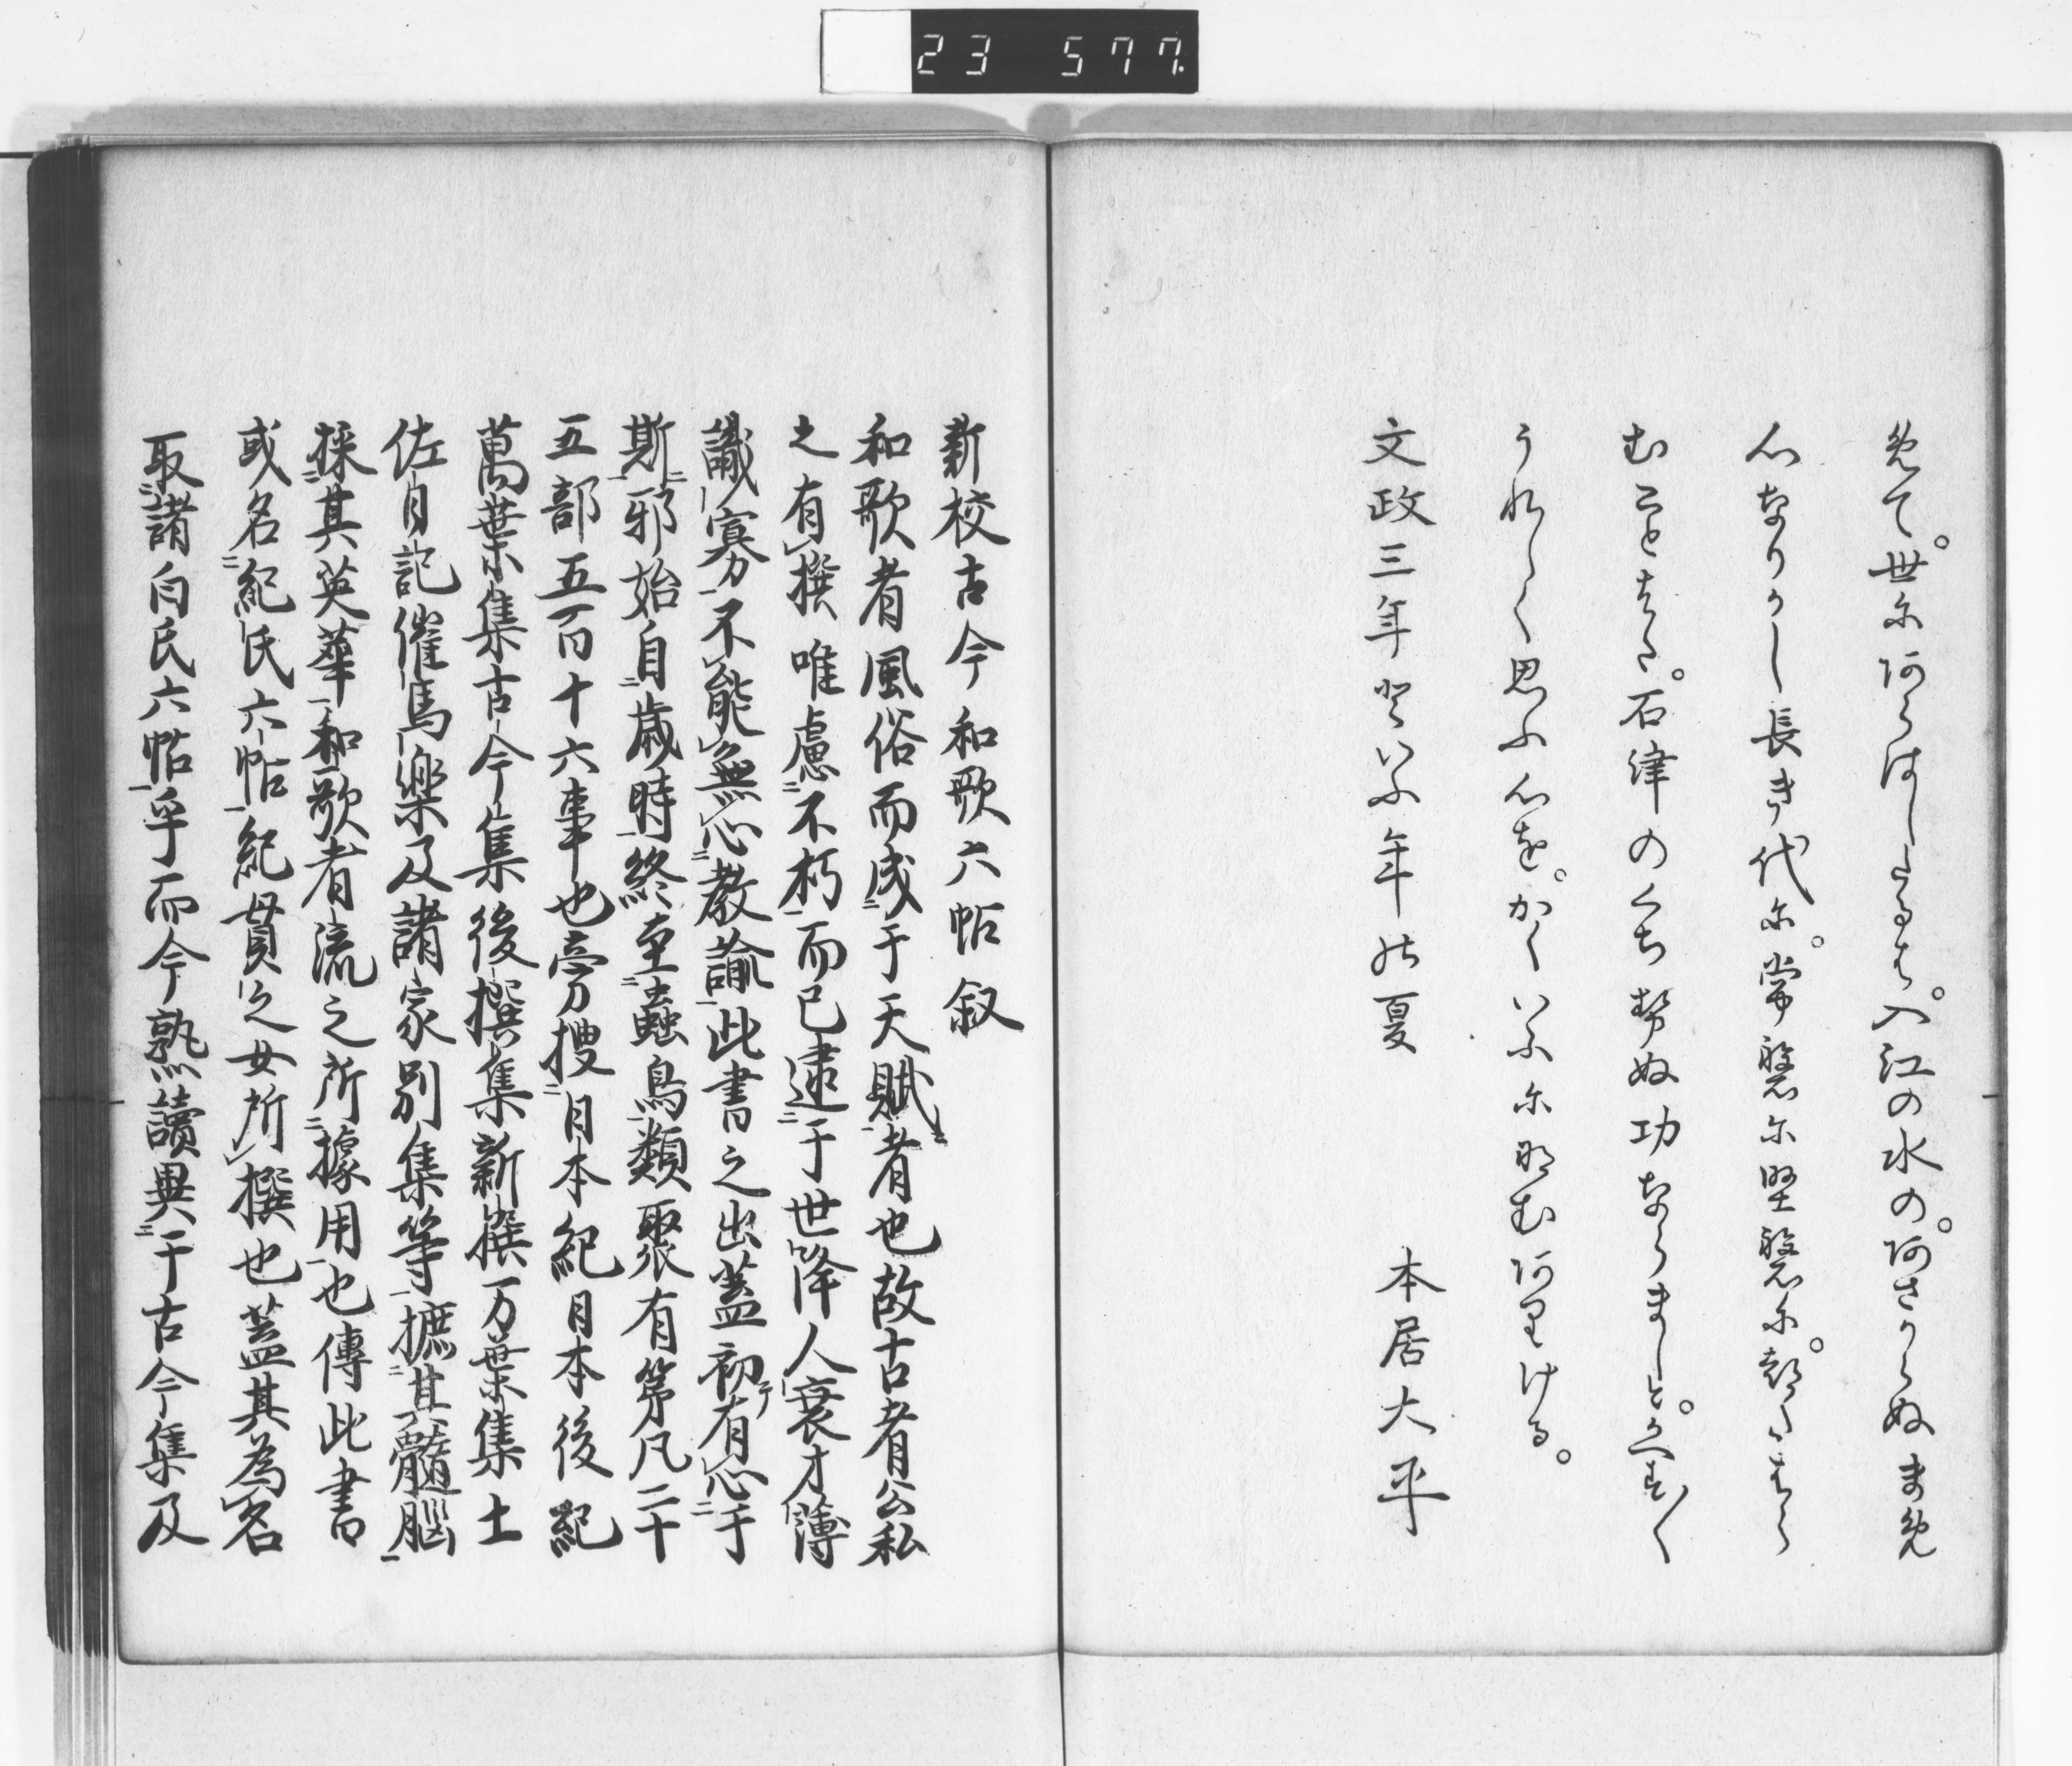 23 577.
免て。世尓阿らはしたるは。入江の水の。阿さからぬま免
心なりかし長き代尓。常磐尓堅磐尓。都たはら
むことはた。石津のくち勢ぬ功ならましと。かへす〳〵
うれしく思ふ心を。かくいふ尓那む阿里ける。
文政三年といふ年能夏　本居大平
新校古今和歌六帖叙
和歌者風俗而成于天賦者也故古者公私
之有撰唯慮不朽而已逮于世降人衰才薄
識寡不能無心教諭此書之出蓋初有心于
斯邪始自歳時終至蟲鳥類聚有第凡二十
五部五百十六事也旁捜日本紀日本後紀
萬葉集古今集後撰集新撰万葉集土
佐日記催馬樂及諸家別集等摭其髓脳
採其英華和歌者流之所據用也傳此書
或名紀氏六帖紀貫之女所撰也蓋其為名
取諸白氏六帖乎而今熟讀與于古今集及